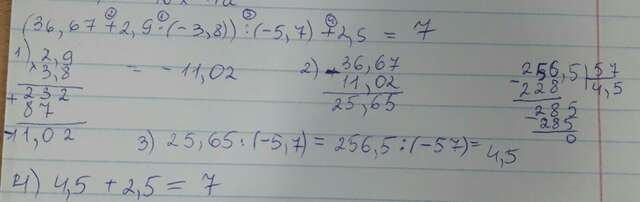 (36,67 + 2,9 · (-3,8)) : (-5,7) + 2,5 = 7
② ① ③ ④
1) 2,9
× 3,8
+ 232
87
-11,02
= -11,02
2) -36,67
11,02
25,65
256,5 | 57
- 228 | 4,5
- 285
285
0
3) 25,65 : (-5,7) = 256,5 : (-57) = 4,5
4) 4,5 + 2,5 = 7